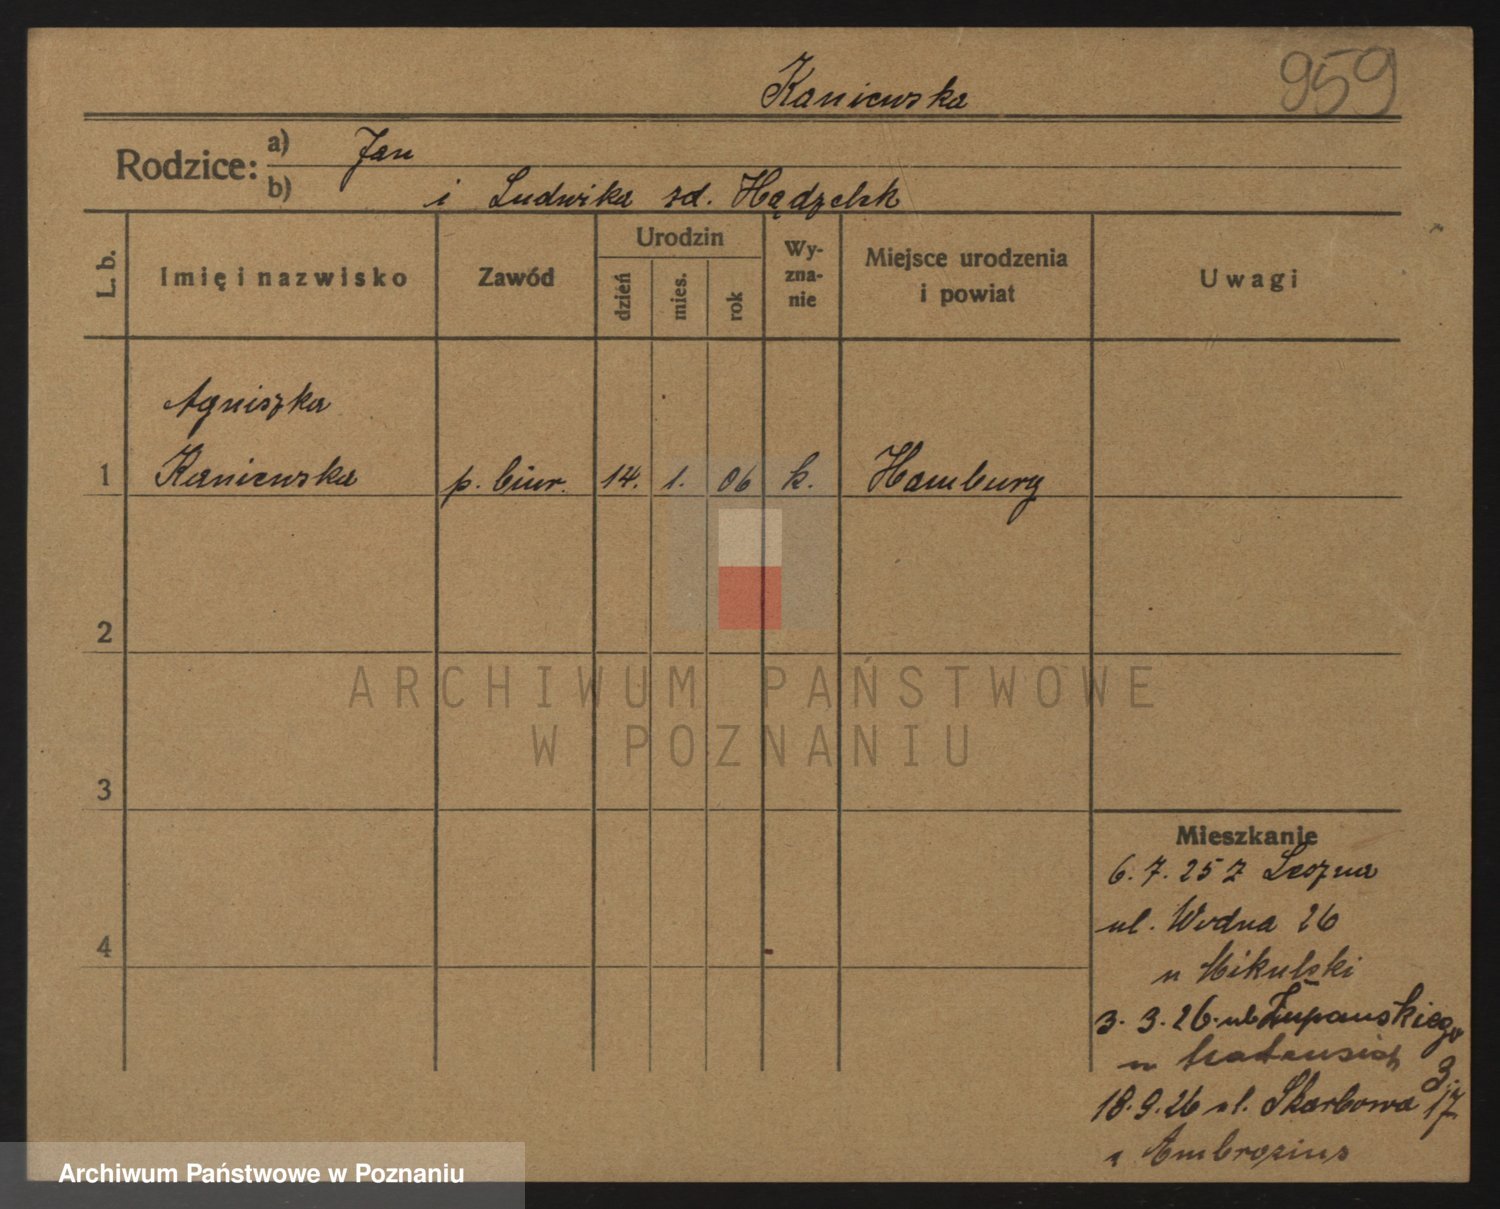 Kaniewska
959
Rodzice:
a) Jan
b) i Ludwika zd.
L. b.
Imię i nazwisko
Zawód
Urodzin
dzień
mies.
rok
Wy-
zna-
nie
Miejsce urodzenia
i powiat
Uwagi
Agniszka
1 Kaniewska p. biur. 14. 1. 06 k. Hamburg
2
3
4
Mieszkanie
6. 7. 25 z Leszna
ul. Wodna 26
u Mikulski
3. 3. 26. ul Żupańskiego
u 3.
18. 9. 26 ul. Skarbowa 17
u Ambrozius
ARCHIWUM PAŃSTWOWE
W POZNANIU
Archiwum Państwowe w Poznaniu